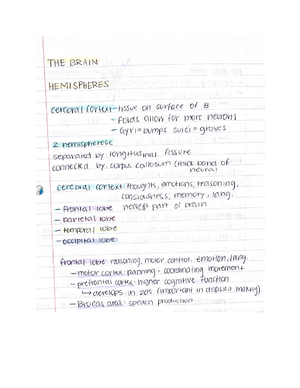 THE BRAIN
HEMISPHERES
cerebral cortex - tissue on surface of B
- Folds allow for more neurons
- Gyri = bumps sulci = groves
2 hemispheres
separated by longitudinal fissure
connected by: corpus callosum (thick band of
neural
cerebral cortex: thoughts, emotions, reasoning,
consiousness, memory, lang.
- frontal lobe newest part of brain
- parietal lobe
- temporal lobe
- occipital lobe
frontal lobe: reasoning, motor control, emotion, lang
- motor cortex: planning + coordinating movement
- prefrontal cortex: higher cognitive function
↳ develops in 20s (important in decision making)
- Brocas area: speach production